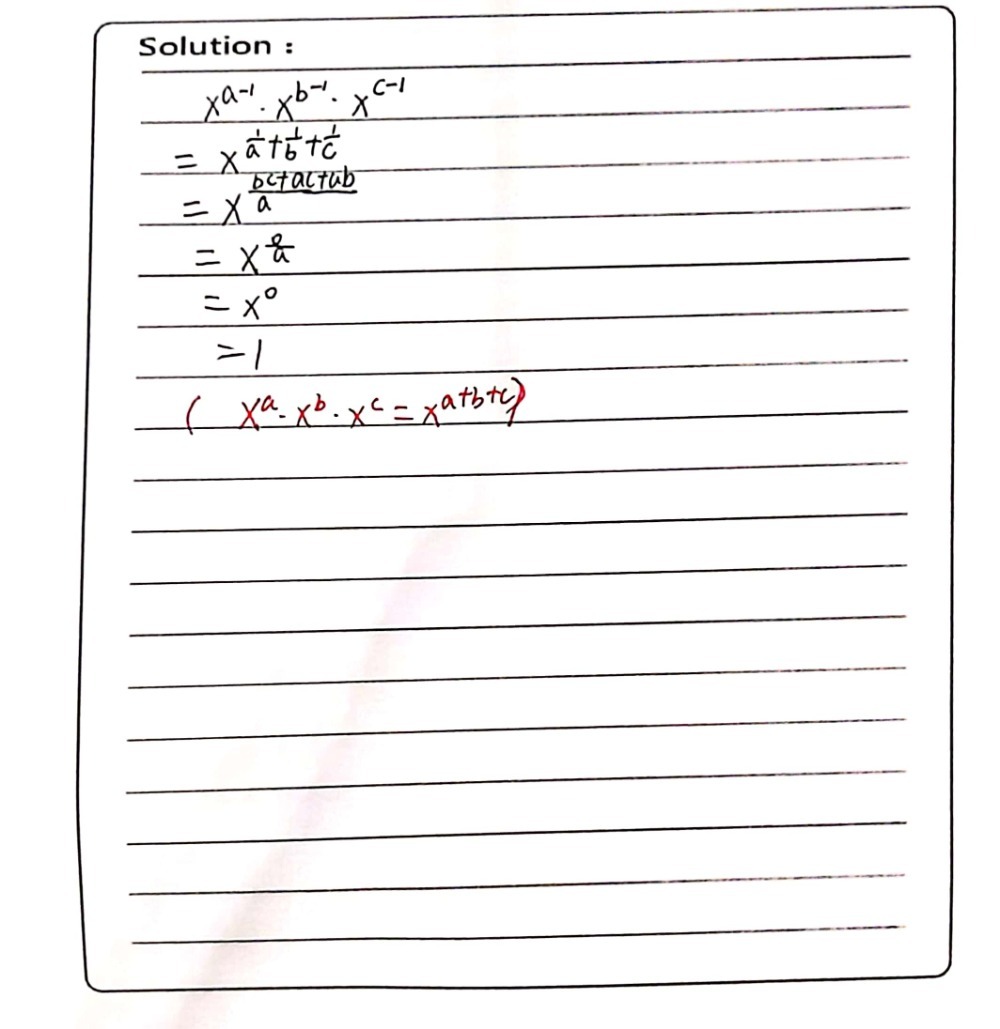 Solution :
x^{a^{-1}} . x^{b^{-1}} . x^{c^{-1}}
= x^{\frac{1}{a}+\frac{1}{b}+\frac{1}{c}}
= x^{\frac{bc+ac+ab}{a}}
= x^{\frac{0}{a}}
= x^0
= 1
( x^a . x^b . x^c = x^{a+b+c})